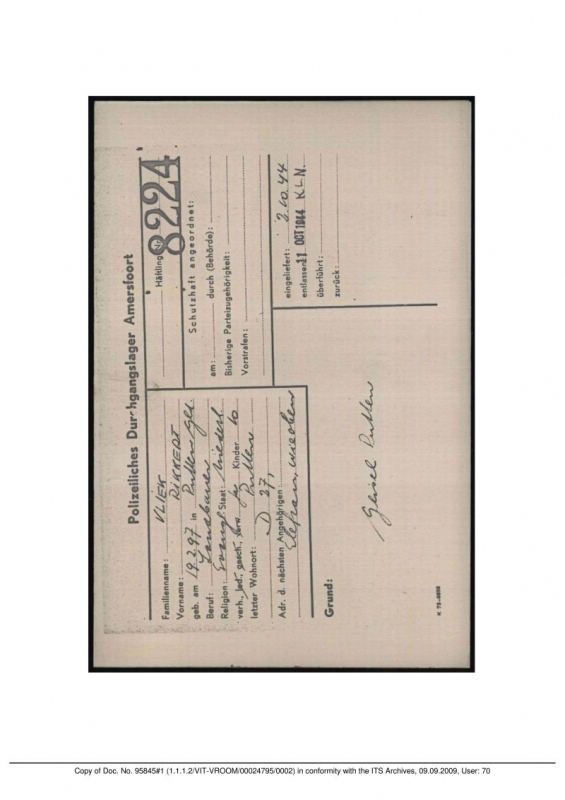 Polizeiliches Durchgangslager Amersfoort
Familienname: VLIEK
Vorname: DIKKERT
geb. am 19.2.97 in Putten Gel.
Beruf: Landbauer
Religion: Evangl. Staat: Niederl.
verh., led., gesch., verw. Kinder 10
letzter Wohnort: Putten
D 27,
Adr. d. nächsten Angehörigen:
Ehefrau, wie oben
Grund:
Häftlings-Nr. 8224
Schutzhaft angeordnet:
am: durch (Behörde):
Bisherige Parteizugehörigkeit:
Vorstrafen:
eingeliefert: 2.10.44
entlassen: 11 OCT 1944 K.L.N.
überführt:
zurück:
Geisel Putten
Copy of Doc. No. 95845#1 (1.1.1.2/VIT-VROOM/00024795/0002) in conformity with the ITS Archives, 09.09.2009, User: 70